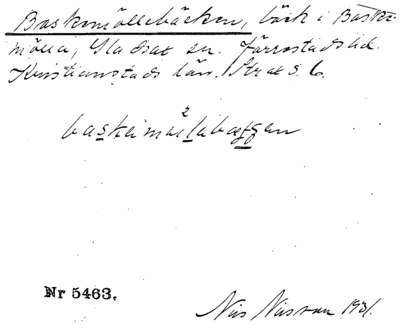 Baskemöllebäcken, bäck i Baske-
mölla, Gladsax sn. Järrestads hd.
Kristianstads län. Str ak s. 6.
Nr 5463.
Nils Nilsson 1931.